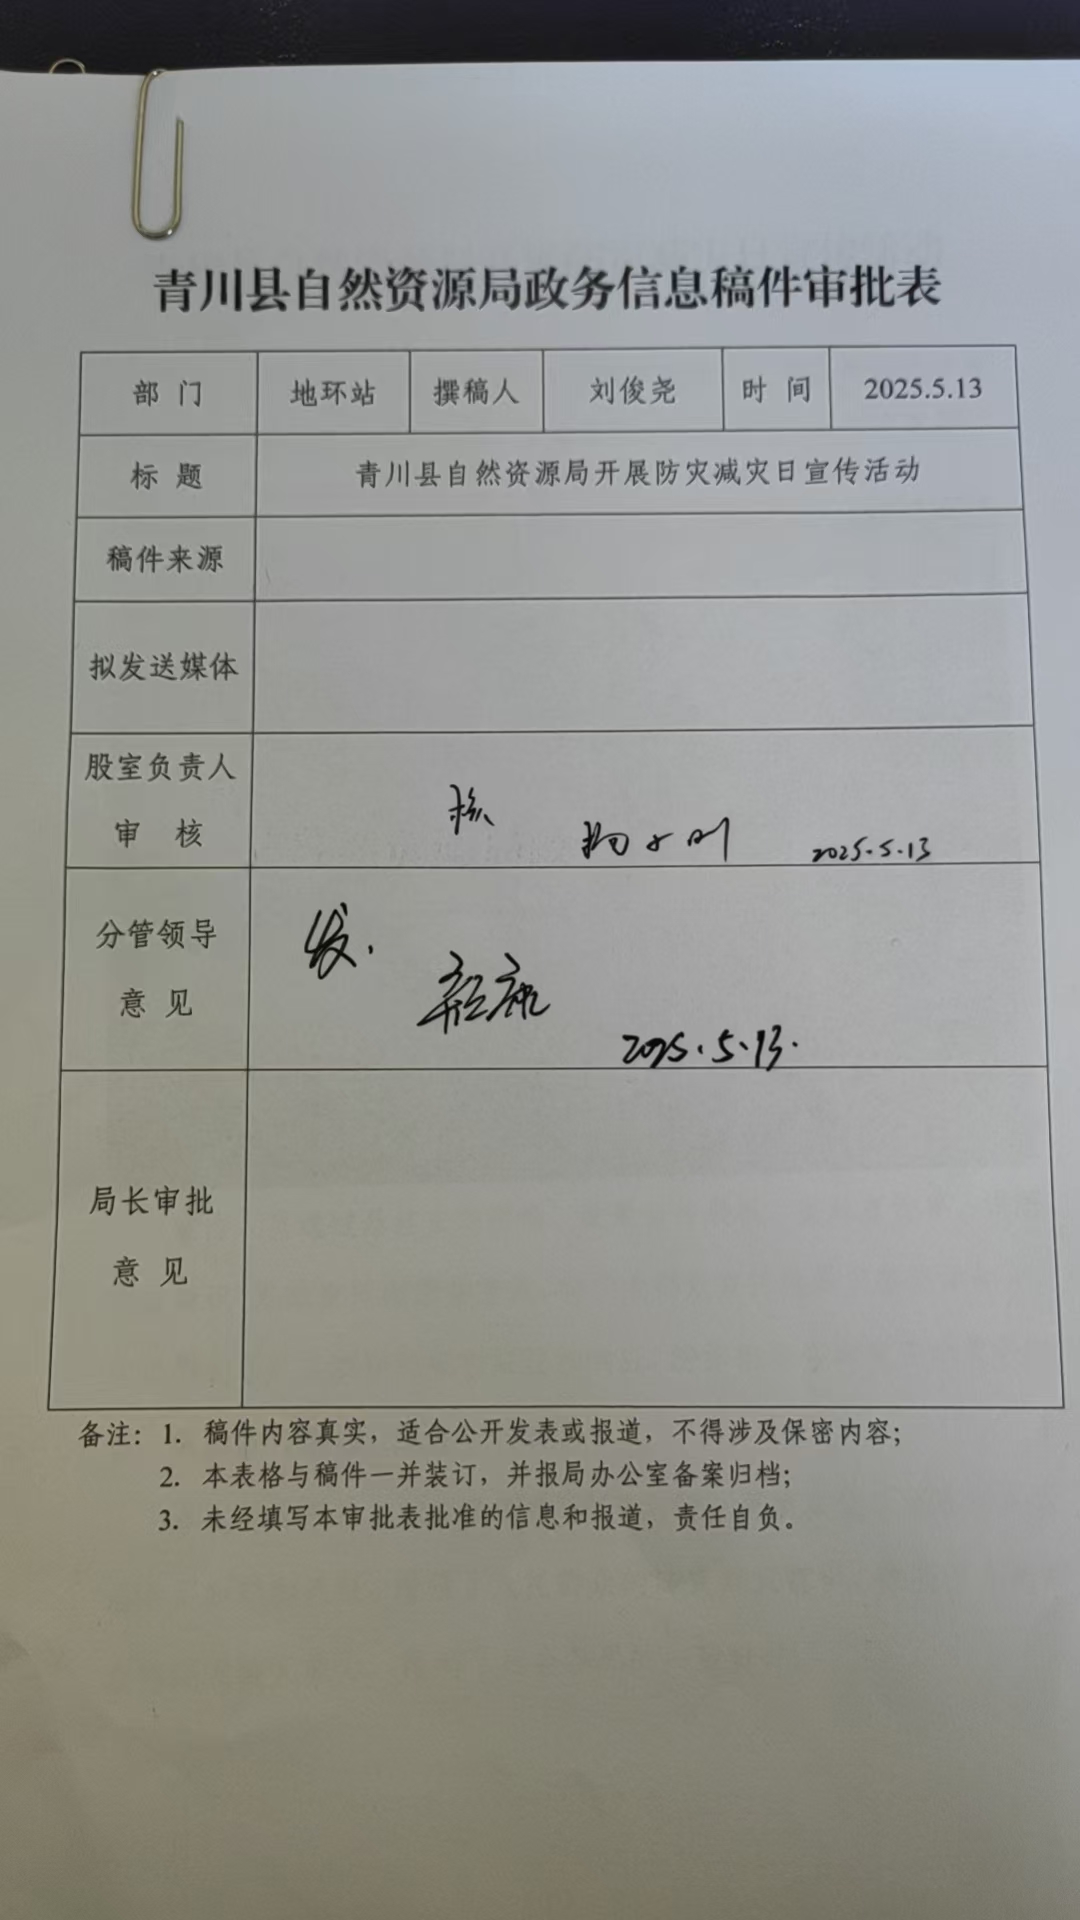 青川县自然资源局政务信息稿件审批表
部 门 地环站 撰稿人 刘俊尧 时 间 2025.5.13
标 题 青川县自然资源局开展防灾减灾日宣传活动
稿件来源
拟发送媒体
股室负责人
审 核
核
2025.5.13
分管领导
意 见
发.
2025.5.13.
局长审批
意 见
备注: 1. 稿件内容真实，适合公开发表或报道，不得涉及保密内容；
2. 本表格与稿件一并装订，并报局办公室备案归档；
3. 未经填写本审批表批准的信息和报道，责任自负。